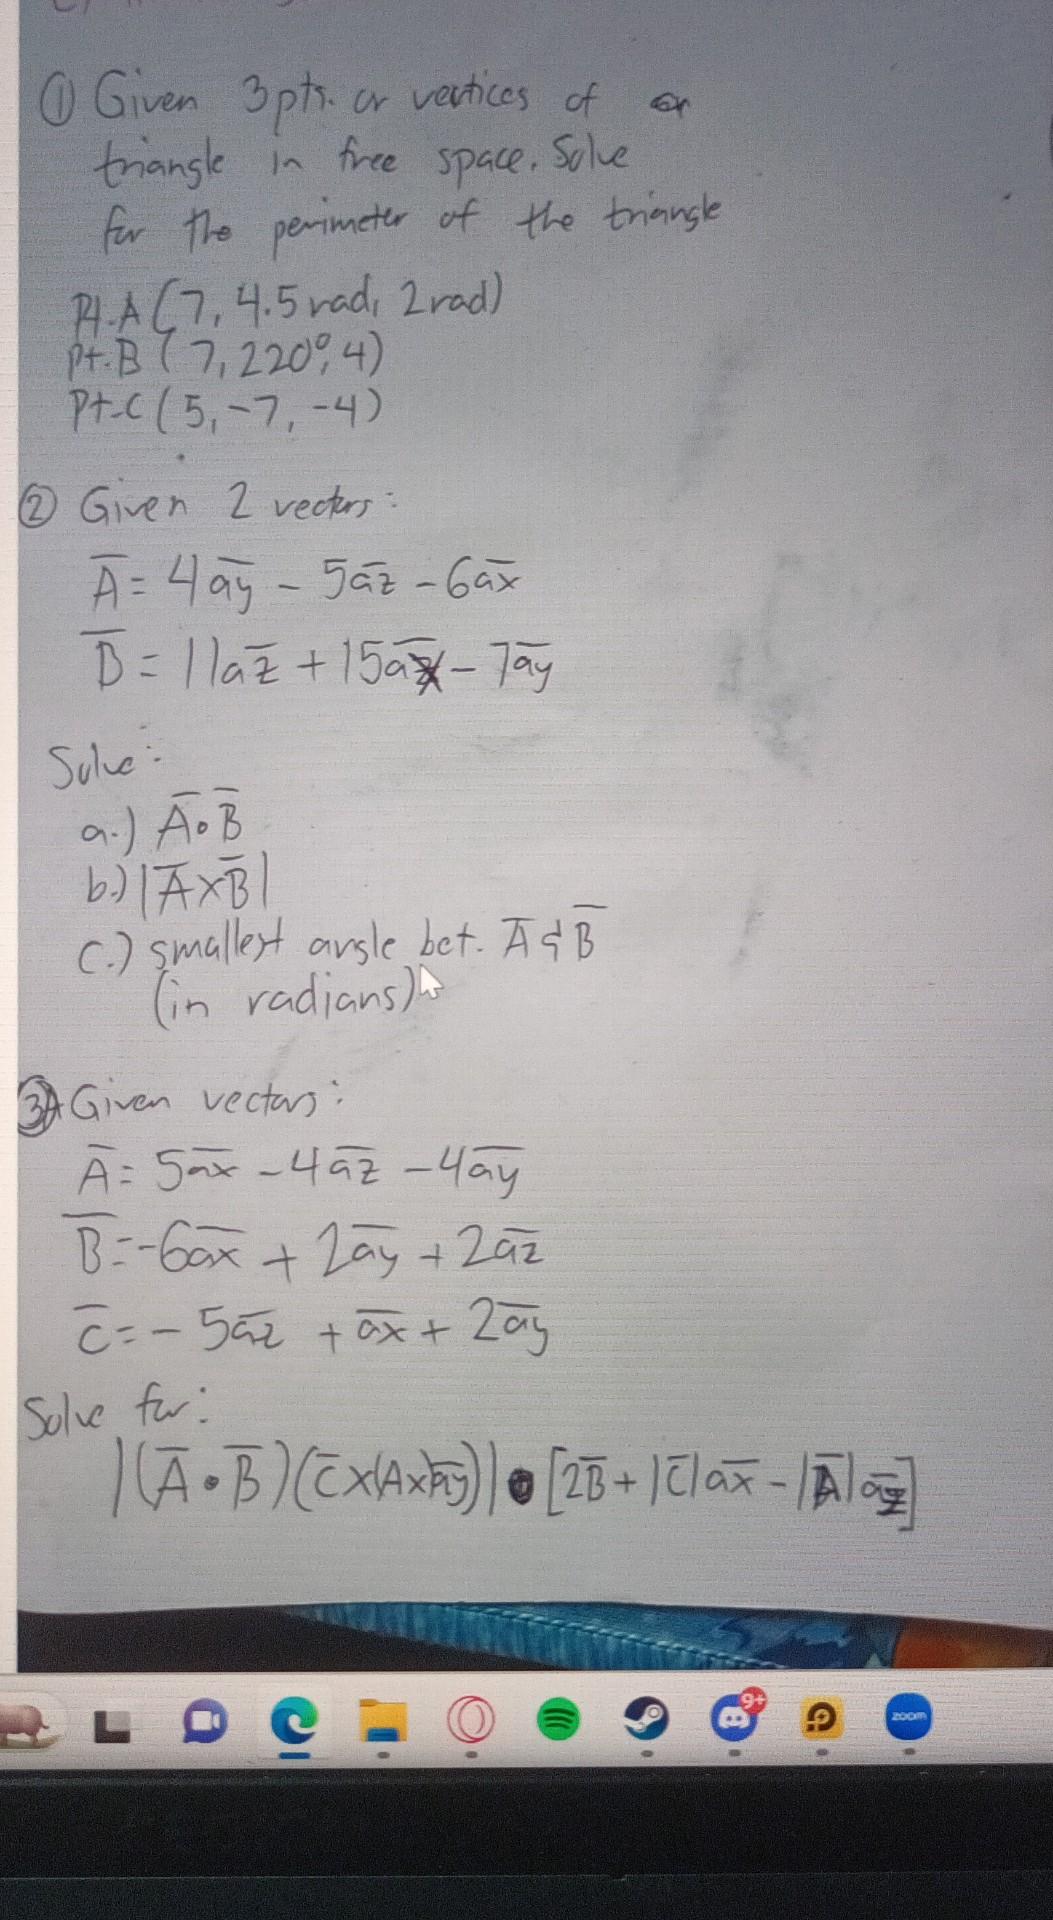 ① Given 3pts. or vertices of
triangle in free space. Solve
for the perimeter of the triangle
Pt.A (7, 4.5 rad, 2 rad)
Pt.B (7, 220°, 4)
Pt.C (5, -7, -4)
② Given 2 vectors:
A̅ = 4a̅y̅ - 5a̅z̅ - 6a̅x̅
B̅ = 11a̅z̅ + 15a̅x̅ - 7a̅y̅
Solve:
a.) A̅•B̅
b.) |A̅×B̅|
c.) smallest angle bet. A̅ & B̅
(in radians)
③ Given vectors:
A̅ = 5a̅x̅ - 4a̅z̅ - 4a̅y̅
B̅ = -6a̅x̅ + 2a̅y̅ + 2a̅z̅
C̅ = - 5a̅z̅ + a̅x̅ + 2a̅y̅
Solve for:
|(A̅•B̅)(C̅×(A×a̅y̅))| • [2B̅ + |C̅|a̅x̅ - |A̅|a̅z̅]
9+
zoom